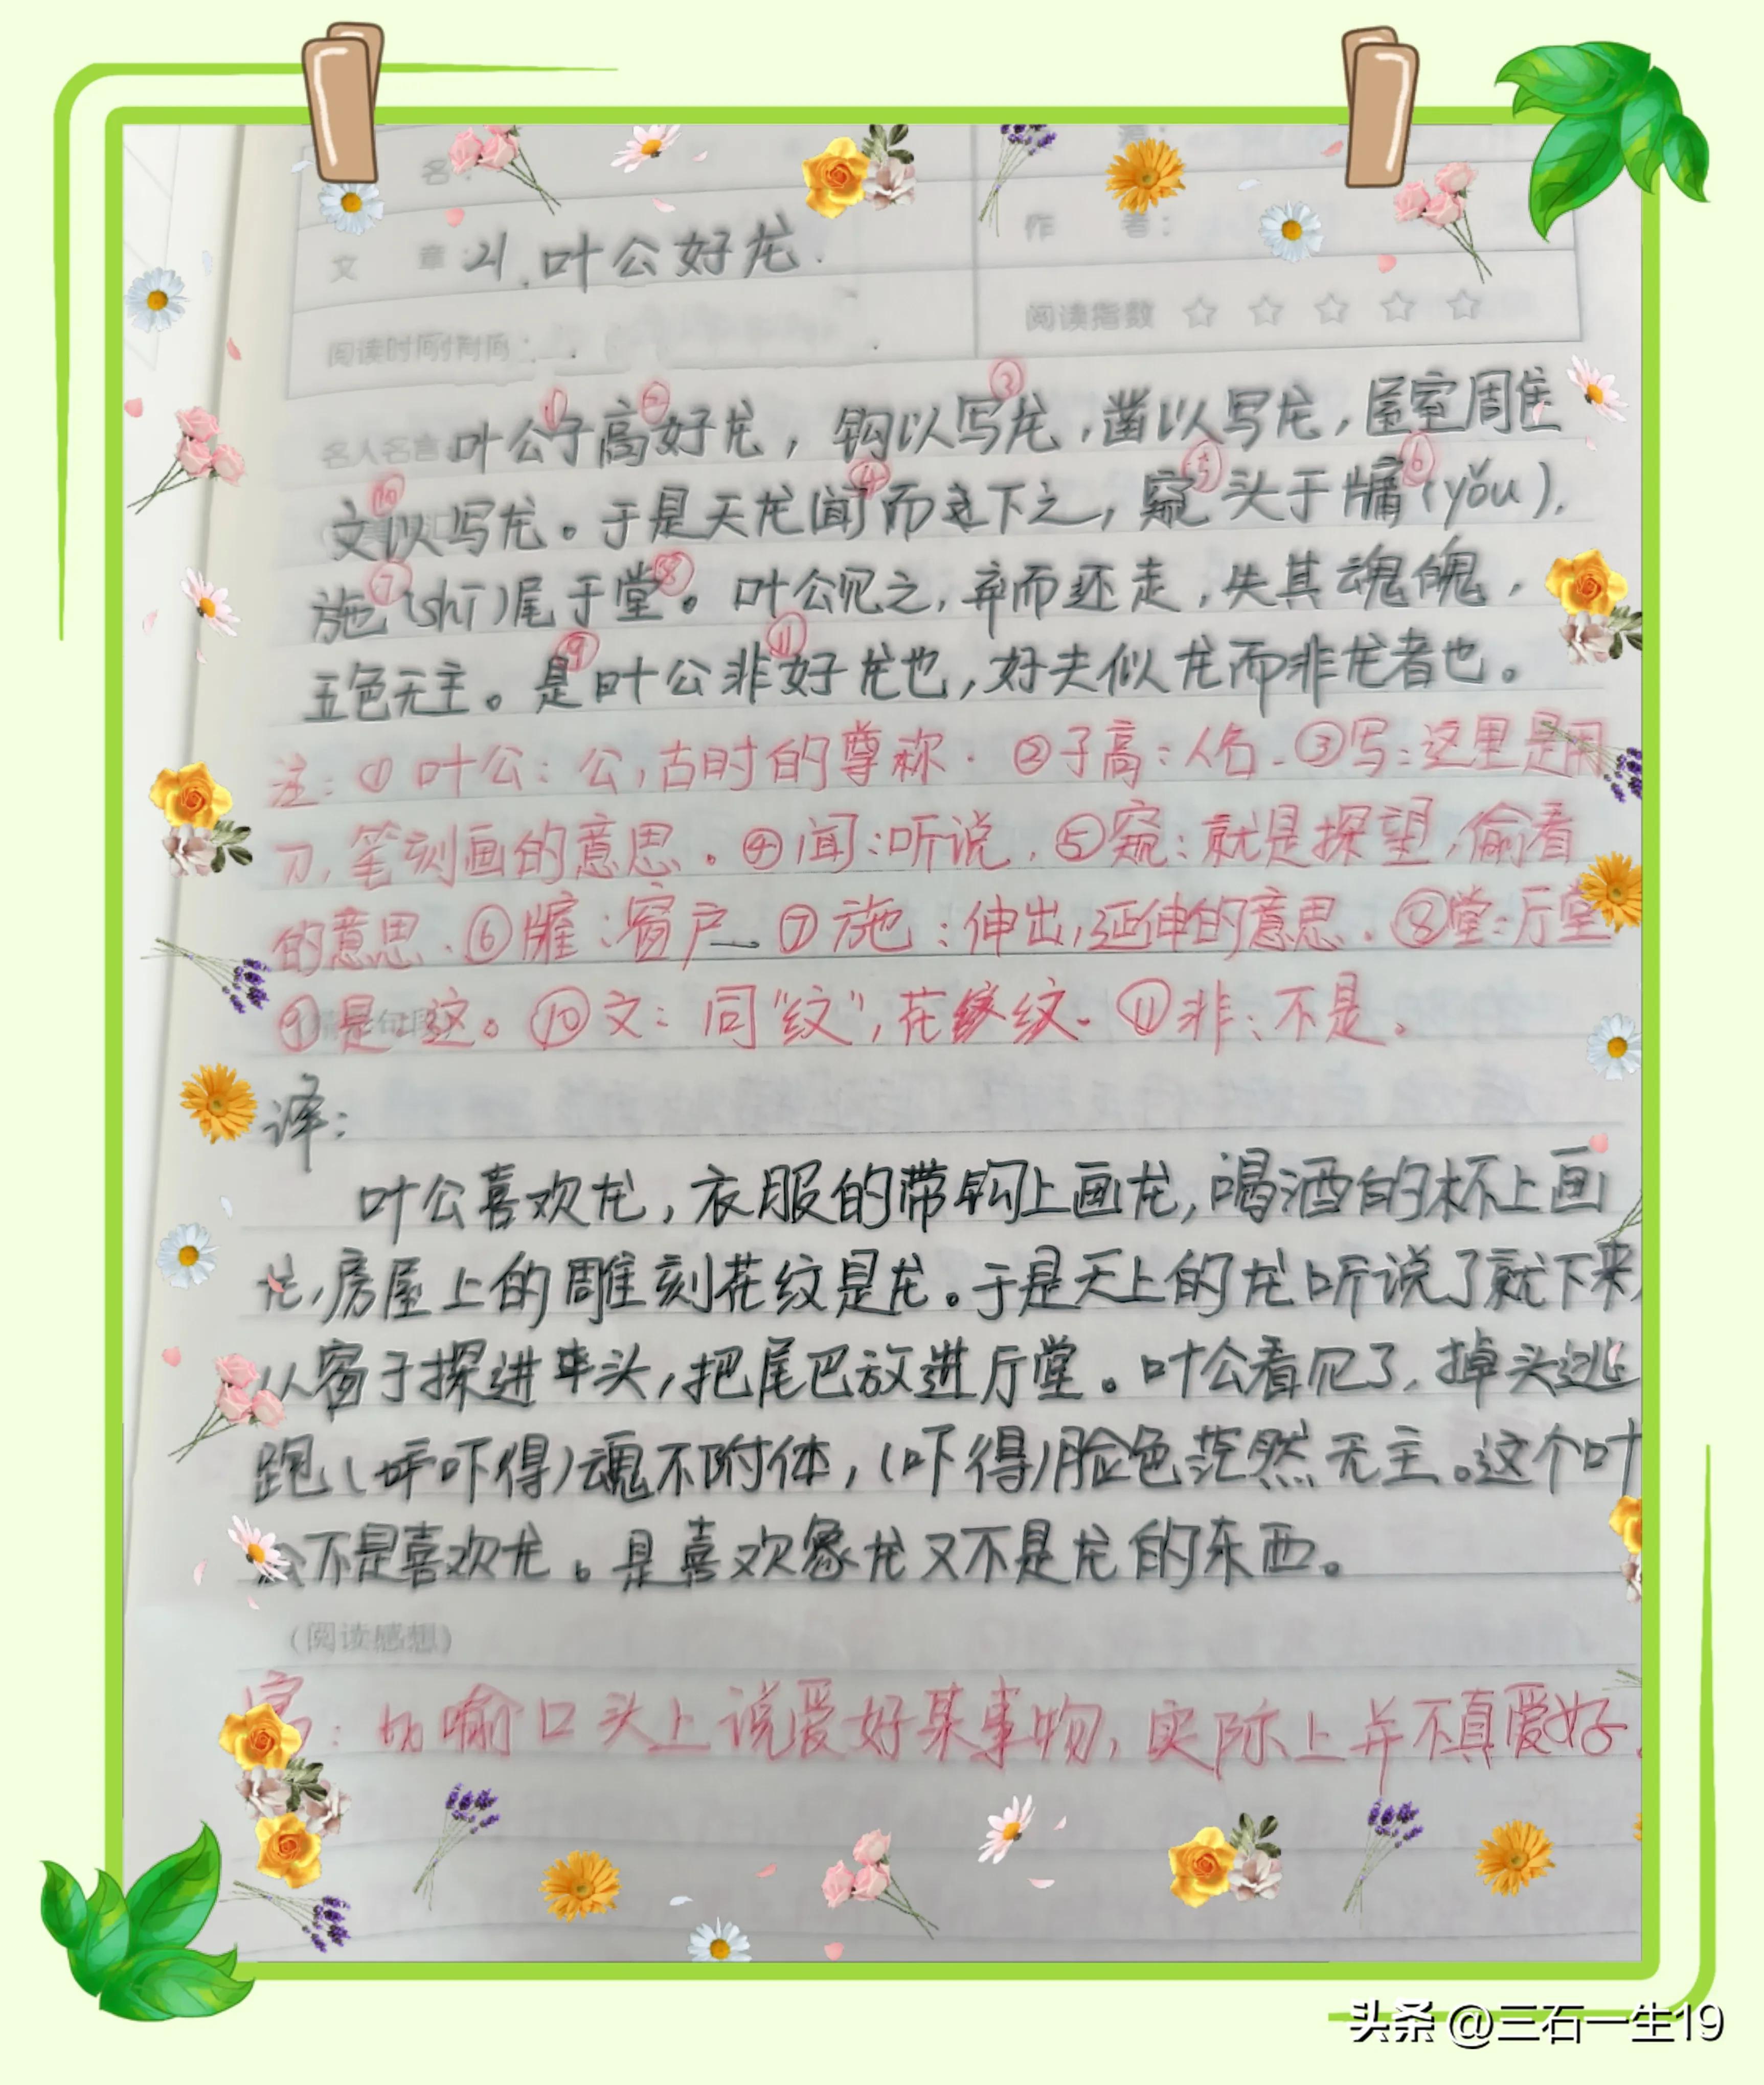 名:
作 者:
文 章: 21. 叶公好龙.
阅读指数 ☆ ☆ ☆ ☆ ☆
阅读时间
名人名言 叶公①子高②好龙，钩以写③龙，凿以写龙，屋室周隹
文⑩以写龙。于是天龙闻④而下之，窥⑤头于牖⑥(yǒu),
施⑦(shī)尾于堂⑧。叶公见之，弃而还走，失其魂魄，
五色无主。是⑨叶公非⑪好龙也，好夫似龙而非龙者也。
注: ① 叶公: 公,古时的尊称. ②子高:人名. ③写:这里是用
刀,笔刻画的意思. ④闻:听说. ⑤窥:就是探望,偷看
的意思. ⑥牖:窗户. ⑦施:伸出,延伸的意思. ⑧堂:厅堂
⑨是:这。⑩文: 同“纹”,花纹. ⑪非:不是.
译:
叶公喜欢龙，衣服的带钩上画龙,喝酒的杯上画
龙,房屋上的雕刻花纹是龙。于是天上的龙听说了就下来,
从窗子探进头,把尾巴放进厅堂。叶公看见了,掉头逃
跑(吓得)魂不附体，(吓得)脸色茫然无主。这个叶
公不是喜欢龙。是喜欢象龙又不是龙的东西。
(阅读感想)
: 比喻口头上说爱好某事物,实际上并不真爱好.
头条 @三石一生19